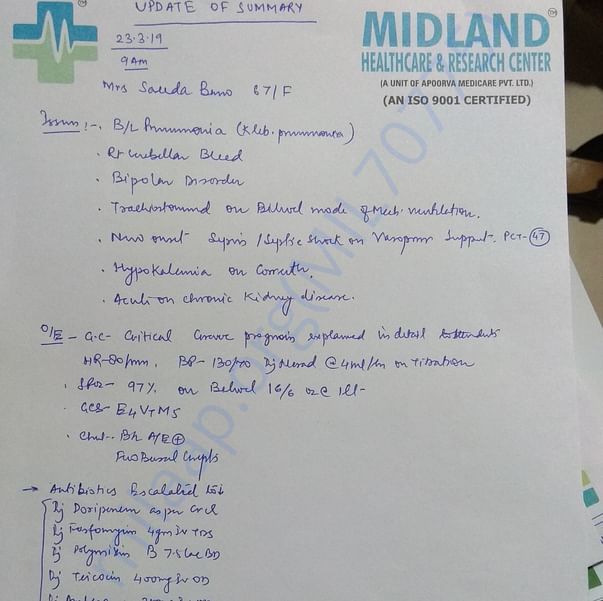 UPDATE OF SUMMARY
23.3.19
9 Am
MIDLAND
HEALTHCARE & RESEARCH CENTER
(A UNIT OF APOORVA MEDICARE PVT. LTD.)
(AN ISO 9001 CERTIFIED)
TM
Mrs Sauda Bano 67/F
Issues:-. B/L Pneumonia (Kleb. pneumonia)
. Rt Cerebellar Bleed
. Bipolar Disorder
. Tracheostomised on Bilevel mode of Mech. ventilation.
. New onset Sepsis / Septic Shock on Vasopressor Support. PCT- 47
. Hypokalemia on Correctn.
. Acute on chronic Kidney disease.
O/E - G.C- Critical Grave prognosis explained in detail to attendants
HR-80/min, BP- 130/70 Inj Norad @ 4ml/hr on titration
. SPO2- 97% on Bilevel 16/6 O2@ 1 lit
. GCS- E4VTM5
. Chest-. B/L A/E +
Few Basal Crepts
→ Antibiotics Escalated
Inj Doripenem as per CrCl
Inj Fosfomycin 4gm IV TDS
Inj Polymixin B 7.5 Lac BD
Inj Teicocin 400mg IV OD